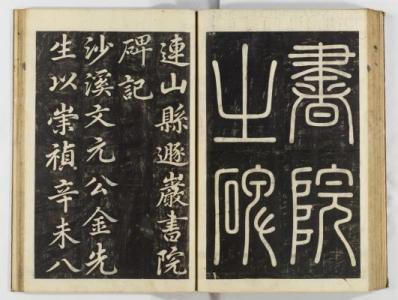 書院
之碑
連山縣遯巖書院
碑記
沙溪文元公金先
生以崇禎辛未八